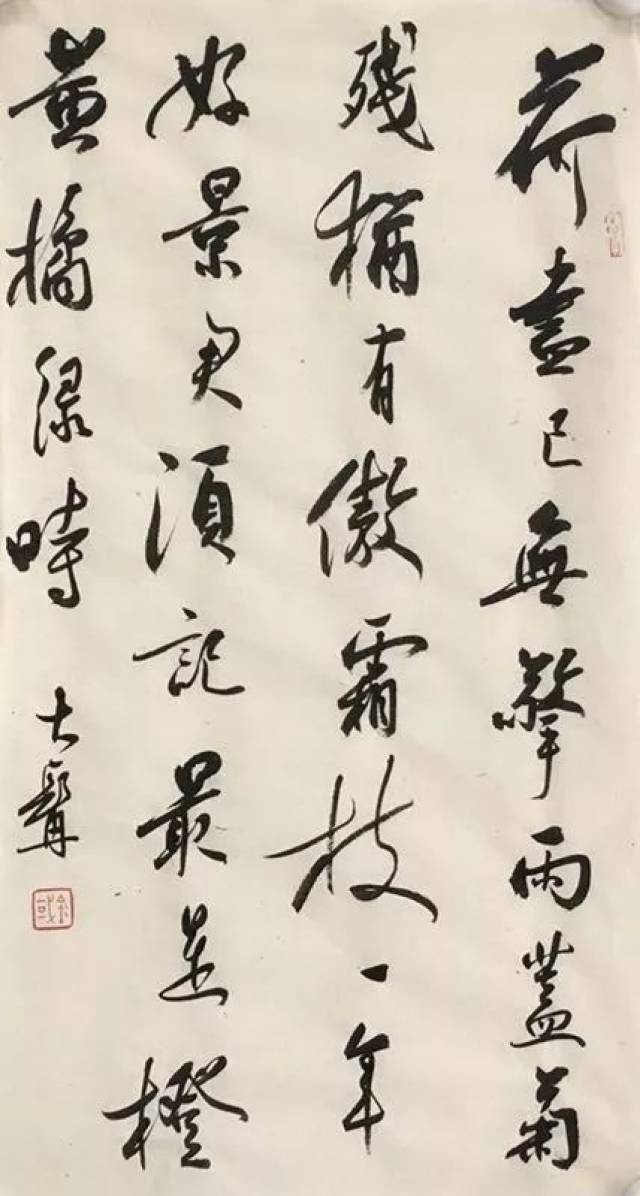 荷盡已無擎雨蓋菊
殘猶有傲霜枝一年
好景君須記最是橙
黃橘綠時 大髯